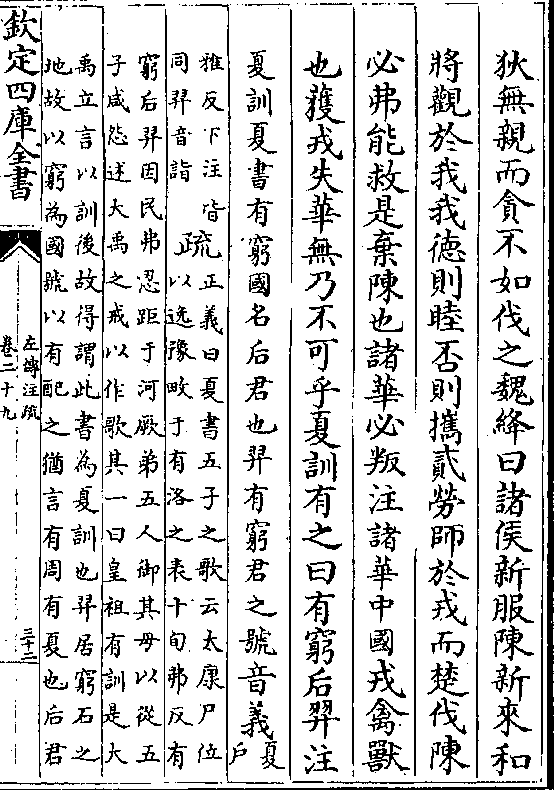 狄無親而貪不如伐之魏絳曰諸侯新服陳新來和
將觀於我我德則睦否則攜貳勞師於戎而楚伐陳
必弗能救是棄陳也諸華必叛注諸華中國戎禽獸
也獲戎失華無乃不可乎夏訓有之曰有窮后羿注
夏訓夏書有窮國名后君也羿有窮君之號音義夏戶
雅反下注皆
同羿音詣
疏
正義曰夏書五子之歌云太康尸位
以逸豫畋于有洛之表十旬弗反有
窮后羿因民弗忍距于河厥弟五人御其母以從五
子咸怨述大禹之戒以作歌其一曰皇祖有訓是大
禹立言以訓後故得謂此書為夏訓也羿居窮石之
地故以窮為國號以有配之猶言有周有夏也后君
欽定四庫全書
左傳注疏
卷二十九
三十二